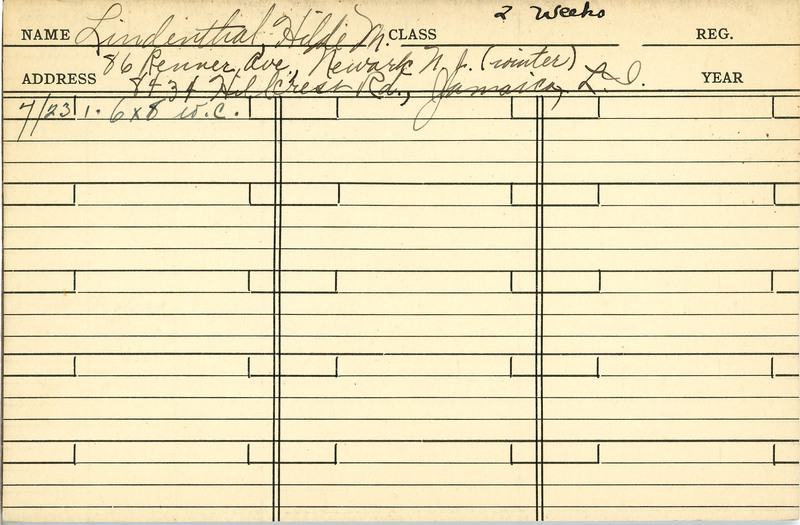 2 Weeks
NAME Lindenthal, Hilde M. CLASS REG.
86 Renner Ave Newark N. J. (winter)
ADDRESS 8434 Hillcrest Rd., Jamaica, L. I. YEAR
7/23 1. 6x8 w.c.